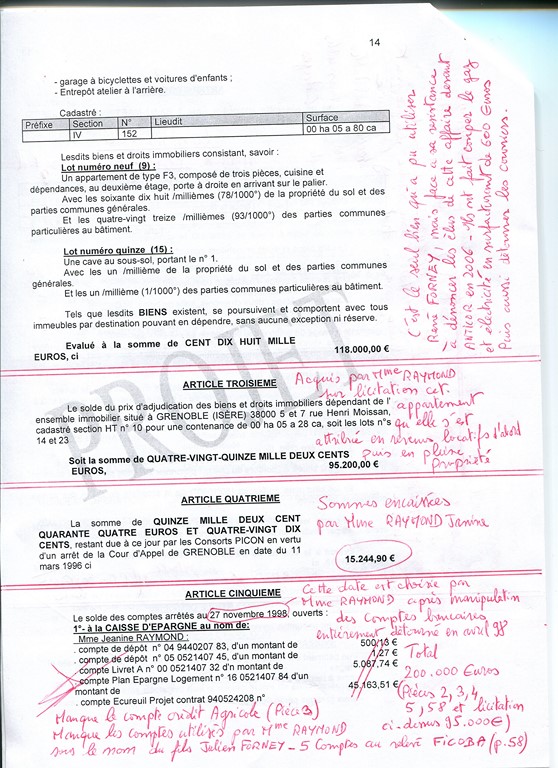 14
- garage à bicyclettes et voitures d'enfants ;
- Entrepôt atelier à l'arrière.
Cadastré :
Préfixe Section N° Lieudit Surface
IV 152 00 ha 05 a 80 ca
Lesdits biens et droits immobiliers consistant, savoir :
Lot numéro neuf (9) :
Un appartement de type F3, composé de trois pièces, cuisine et
dépendances, au deuxième étage, porte à droite en arrivant sur le palier.
Avec les soixante dix huit /millièmes (78/1000°) de la propriété du sol et des
parties communes générales.
Et les quatre-vingt treize /millièmes (93/1000°) des parties communes
particulières au bâtiment.
Lot numéro quinze (15) :
Une cave au sous-sol, portant le n° 1.
Avec les un /millième de la propriété du sol et des parties communes
générales.
Et les un /millième (1/1000°) des parties communes particulières au bâtiment.
Tels que lesdits BIENS existent, se poursuivent et comportent avec tous
immeubles par destination pouvant en dépendre, sans aucune exception ni réserve.
Evalué à la somme de CENT DIX HUIT MILLE
EUROS, ci 118.000,00 €
C'est le seul bien qu'a pu utiliser
René FORNEY, mais face à sa résistance
à dénoncer les élus de cette affaire devant
ANTICOR en 2006 - Ils ont fait couper le gaz
et électricité en surfacturant de 600 Euros
Puis aussi détourner les courriers.
PROJET
ARTICLE TROISIEME
Acquis par Mme RAYMOND
sur licitation cet
Le solde du prix d'adjudication des biens et droits immobiliers dépendant de l'
appartement
ensemble immobilier situé à GRENOBLE (ISÈRE) 38000 5 et 7 rue Henri Moissan,
cadastré section HT n° 10 pour une contenance de 00 ha 05 a 28 ca, soit les lots n°s
qu'elle s'est
14 et 23
attribuée en revenus locatifs d'abord
Soit la somme de QUATRE-VINGT-QUINZE MILLE DEUX CENTS
puis en pleine
EUROS, 95.200,00 €
propriété
ARTICLE QUATRIEME
La somme de QUINZE MILLE DEUX CENT
QUARANTE QUATRE EUROS ET QUATRE-VINGT DIX
CENTS, restant due à ce jour par les Consorts PICON en vertu
d'un arrêt de la Cour d'Appel de GRENOBLE en date du 11
mars 1996 ci
Sommes encaissées
par Mme RAYMOND Janine
15.244,90 €
ARTICLE CINQUIEME
Le solde des comptes arrêtés au 27 novembre 1998, ouverts :
1°- à la CAISSE D'EPARGNE au nom de:
Mme Jeanine RAYMOND :
. compte de dépôt n° 04 9440207 83, d'un montant de 500,13 €
. compte de dépôt n° 05 0521407 45, d'un montant de 1,27 €
. compte Livret A n° 00 0521407 32 d'n montant de 5.087,74 €
. compte Plan Epargne Logement n° 16 0521407 84 d'un
montant de 45.163,51 €
. compte Ecureuil Projet contrat 940524208 n°
Cette date est choisie par
Mme RAYMOND après manipulation
des comptes bancaires
entièrement détourné en avril 98
Total
200.000 Euros
(Pièces 2, 3, 4
5, 58 et licitation
ci-dessus 95.000€)
Manque le compte crédit Agricole (Pièce 3)
Manque les comptes utilisés par Mme RAYMOND
sous le nom du fils Julien FORNEY - 5 Comptes au relevé FICOBA (p.58)